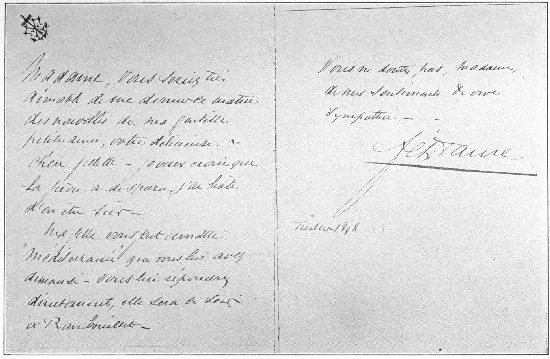 Madame, vous seriez très
aimable de me donner ce matin
des nouvelles de ma gentille
petite amie, votre délicieuse
chère fillette – je veux croire que
la fièvre a disparu, j'ai hâte
d'en être sûr –
Ma fille vous fait
"Méditerranée" que vous lui avez
demandé – Vous lui répondrez
directement, elle sera ce soir
à Rambouillet –
Vous ne doutez pas, madame,
de mes sentiments de vive
sympathie –
Félix Faure
Juillet 1898